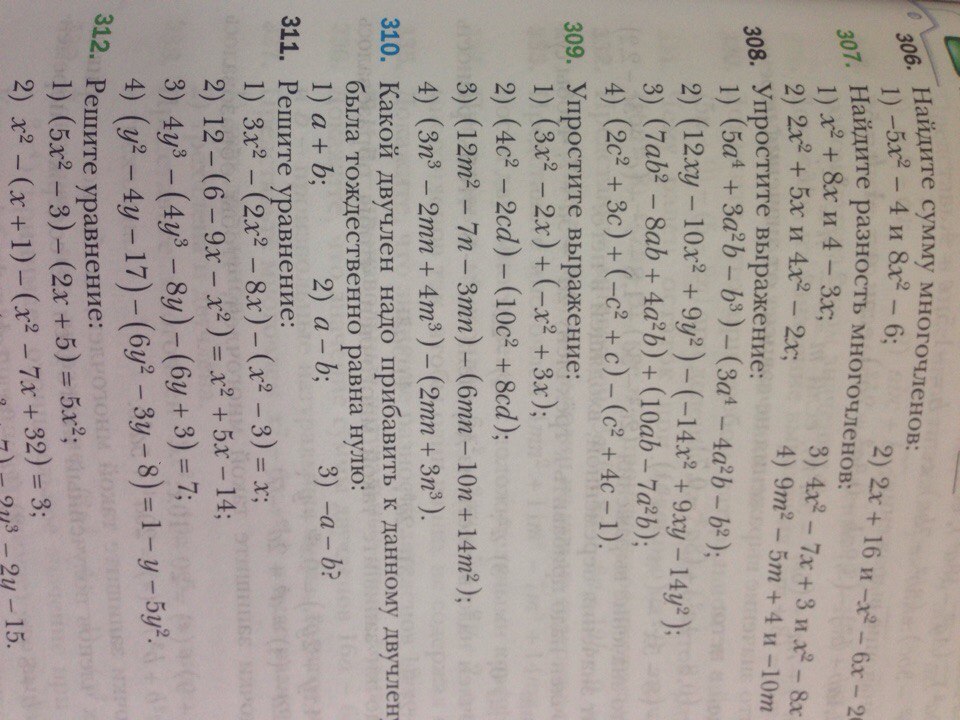 306. Найдите сумму многочленов:
1) −5x² − 4 и 8x² − 6; 2) 2x + 16 и −x² − 6x − 2
307. Найдите разность многочленов:
1) x² + 8x и 4 − 3x; 3) 4x² − 7x + 3 и x² − 8x
2) 2x² + 5x и 4x² − 2x; 4) 9m² − 5m + 4 и −10m
308. Упростите выражение:
1) (5a⁴ + 3a²b − b³) − (3a⁴ − 4a²b − b²);
2) (12xy − 10x² + 9y²) − (−14x² + 9xy − 14y²);
3) (7ab² − 8ab + 4a²b) + (10ab − 7a²b);
4) (2c² + 3c) + (−c² + c) − (c² + 4c − 1).
309. Упростите выражение:
1) (3x² − 2x) + (−x² + 3x);
2) (4c² − 2cd) − (10c² + 8cd);
3) (12m² − 7n − 3mn) − (6mn − 10n + 14m²);
4) (3n³ − 2mn + 4m³) − (2mn + 3n³).
310. Какой двучлен надо прибавить к данному двучлену
была тождественно равна нулю:
1) a + b; 2) a − b; 3) −a − b?
311. Решите уравнение:
1) 3x² − (2x² − 8x) − (x² − 3) = x;
2) 12 − (6 − 9x − x²) = x² + 5x − 14;
3) 4y³ − (4y³ − 8y) − (6y + 3) = 7;
4) (y² − 4y − 17) − (6y² − 3y − 8) = 1 − y − 5y².
312. Решите уравнение:
1) (5x² − 3) − (2x + 5) = 5x²;
2) x² − (x + 1) − (x² − 7x + 32) = 3;
2y³ − 2y − 15.